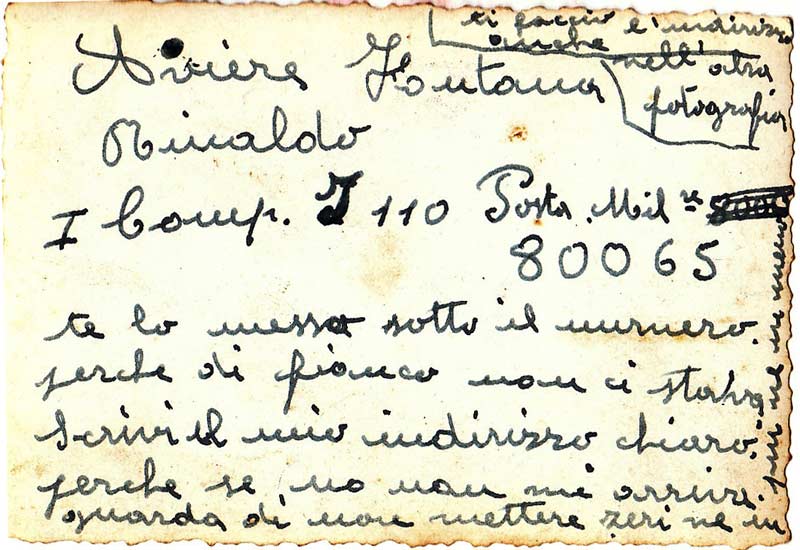 ti faccio l'indirizzo
anche nell'altra
fotografia
Aviere Fontana
Rinaldo
I Comp. I 110 Posta Mil re
80065
te lo messo sotto il numero.
perche di fianco non ci stava
Scrivi il mio indirizzo chiaro.
perche se no non mi arriva.
guarda di non mettere zeri ne in
piu ne in meno